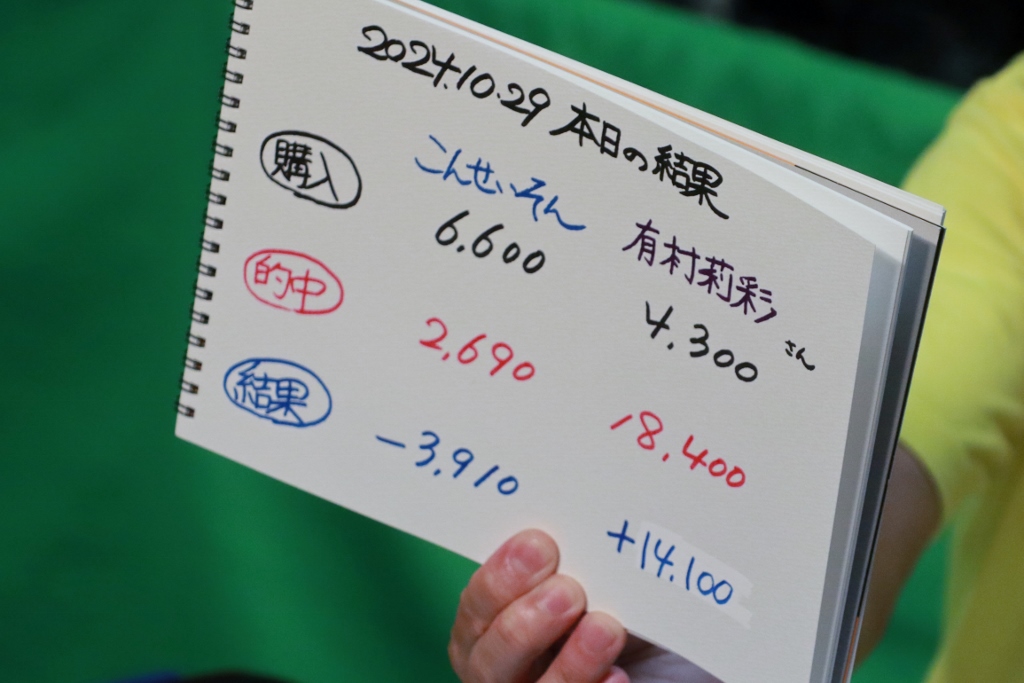 2024.10.29 本日の結果
こんせいそん 有村莉彩さん
購入 6.600 4.300
的中 2.690 18.400
結果 -3.910 +14.100